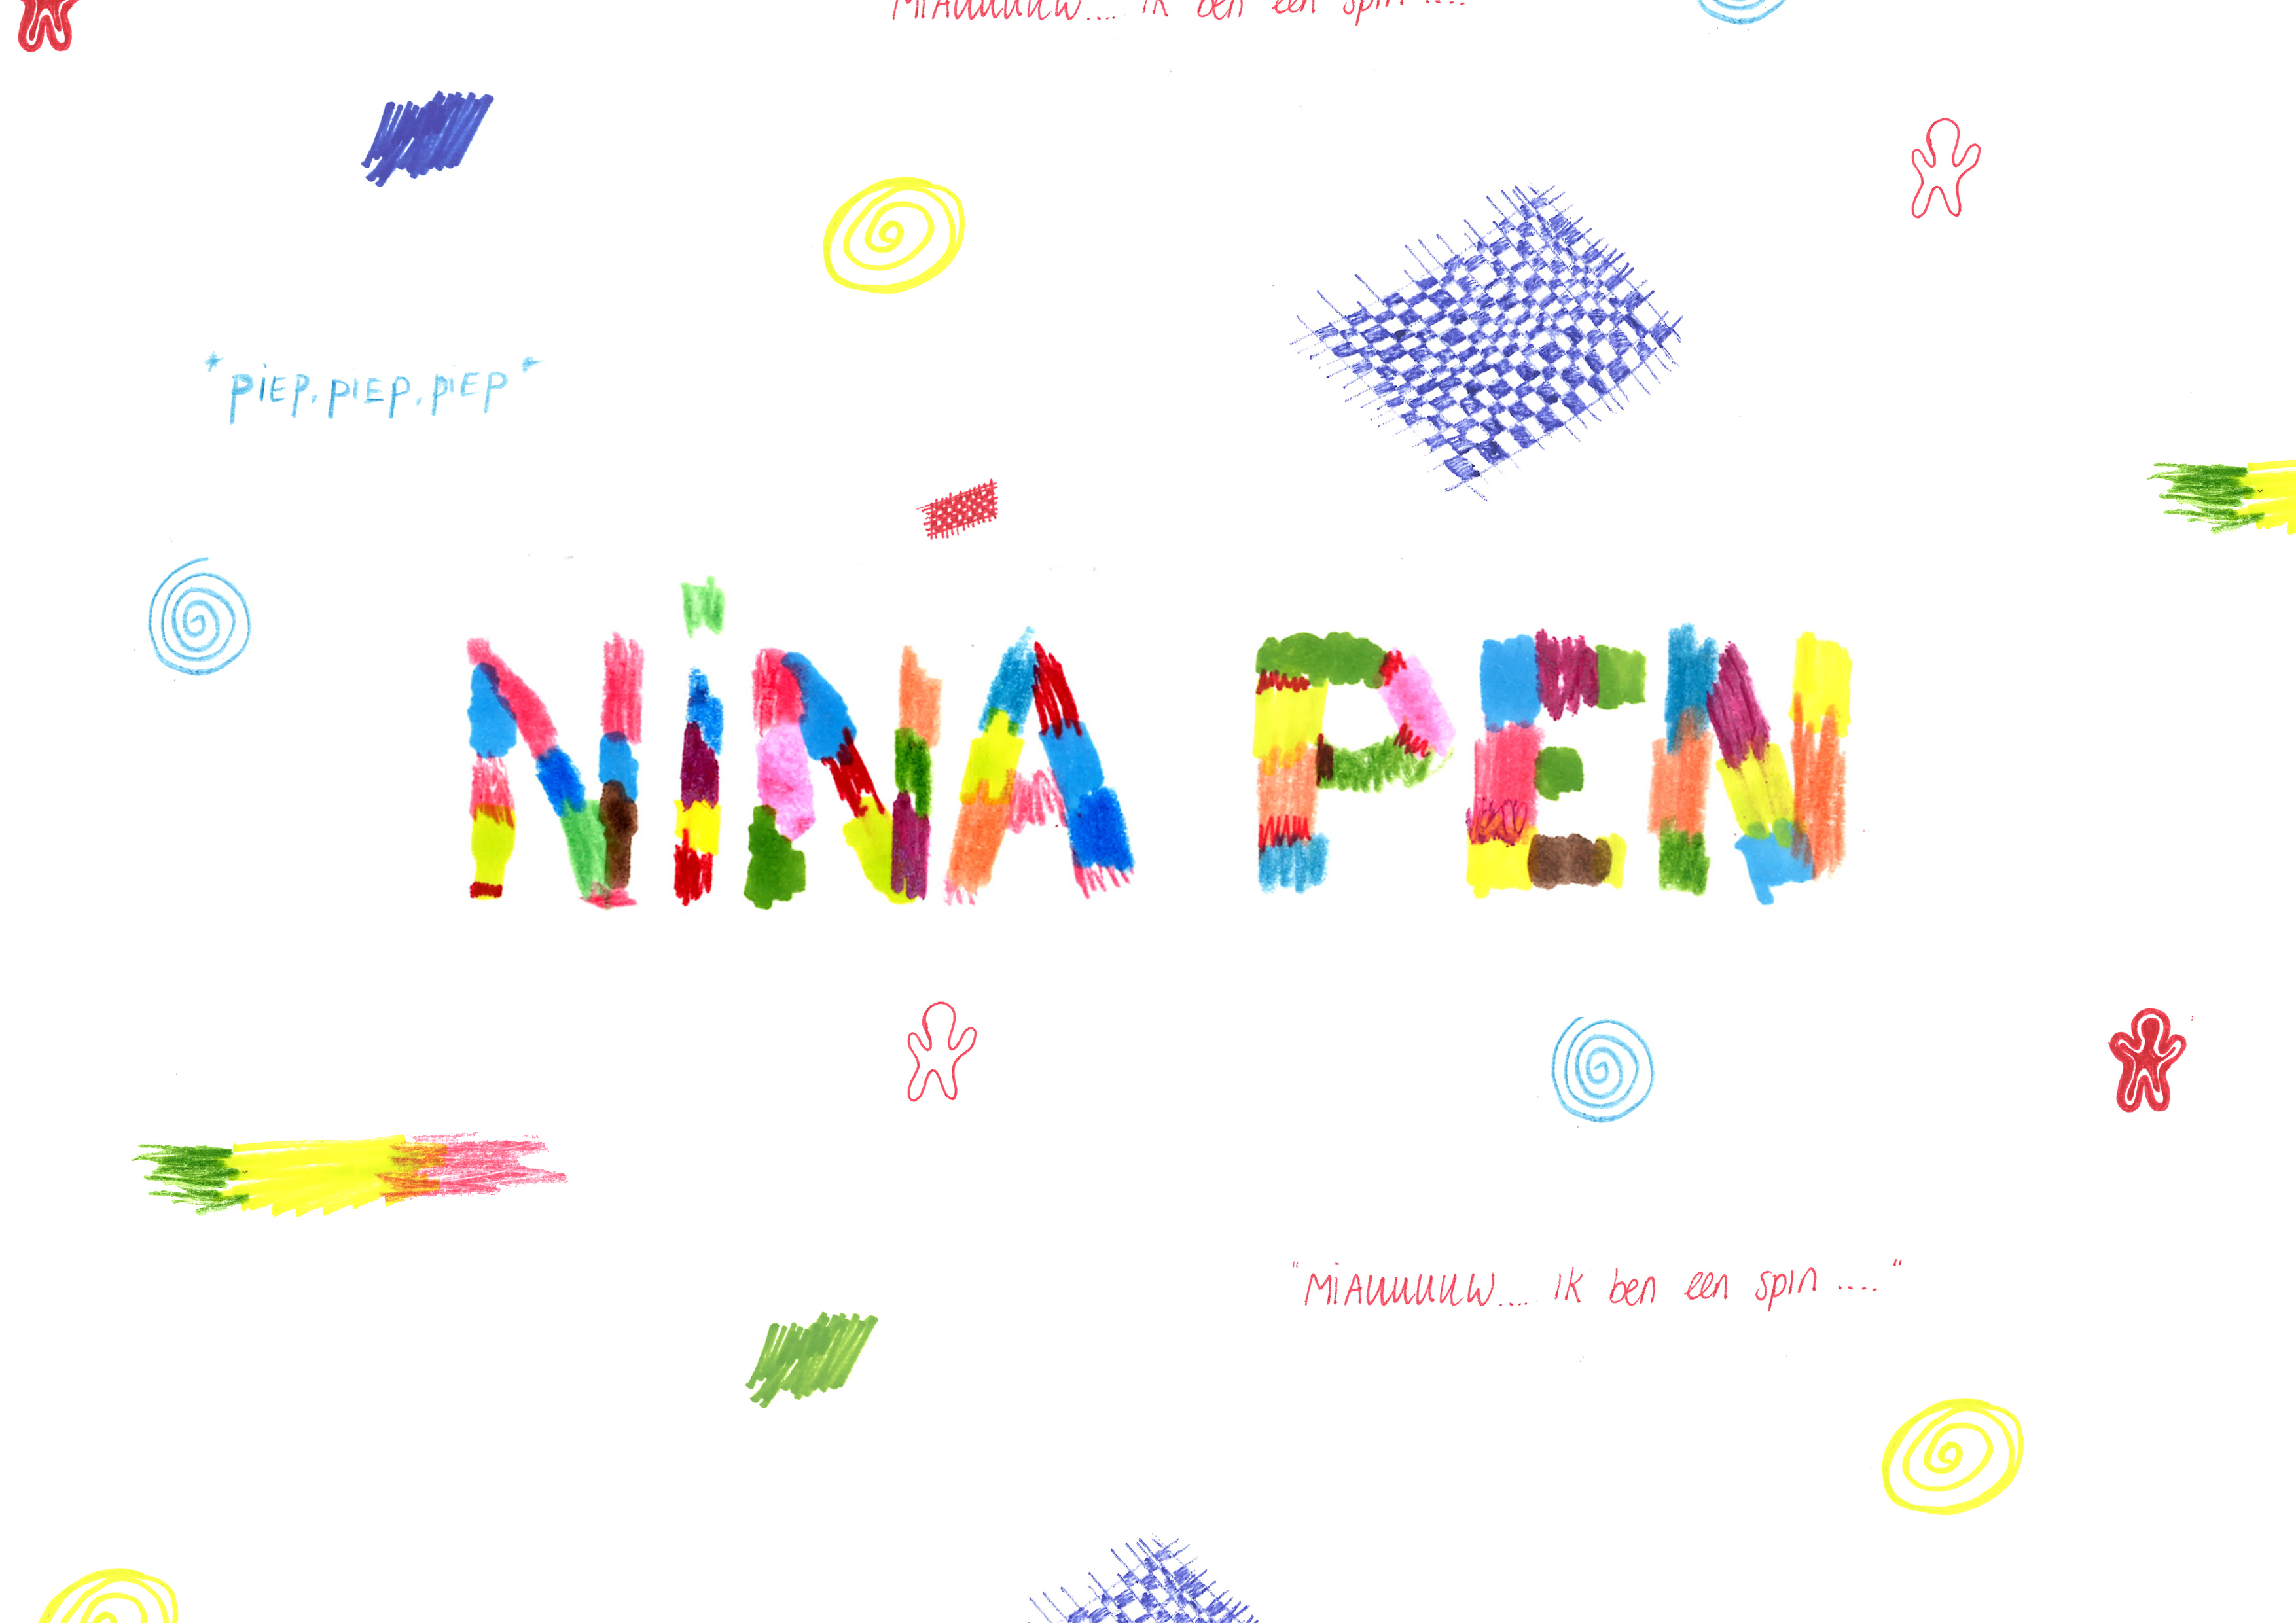 MiAUUUUUW.... IK ben een spin ....
*PiEP, PiEP, PiEP*
NiNA PEN
"MiAUUUUUW.... IK ben een spin ...."